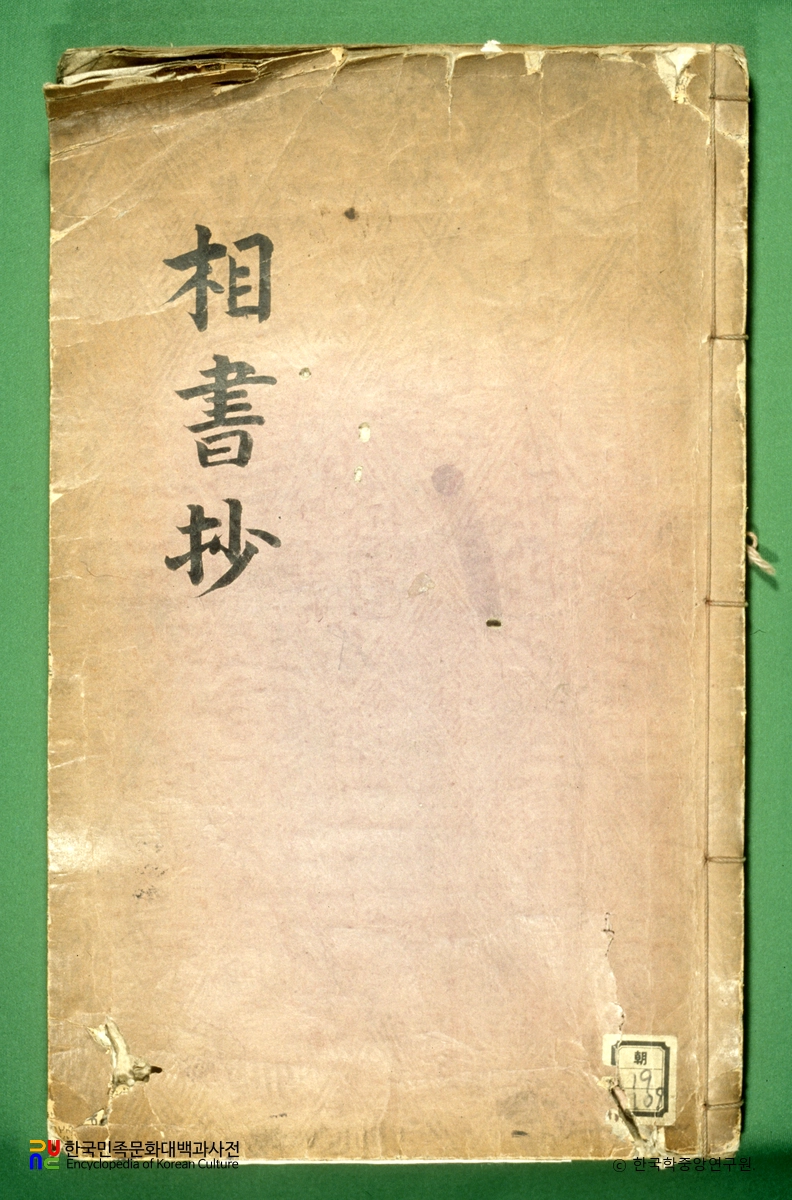 相書抄
朝
19
109
한국민족문화대백과사전
Encyclopedia of Korean Culture
© 한국학중앙연구원